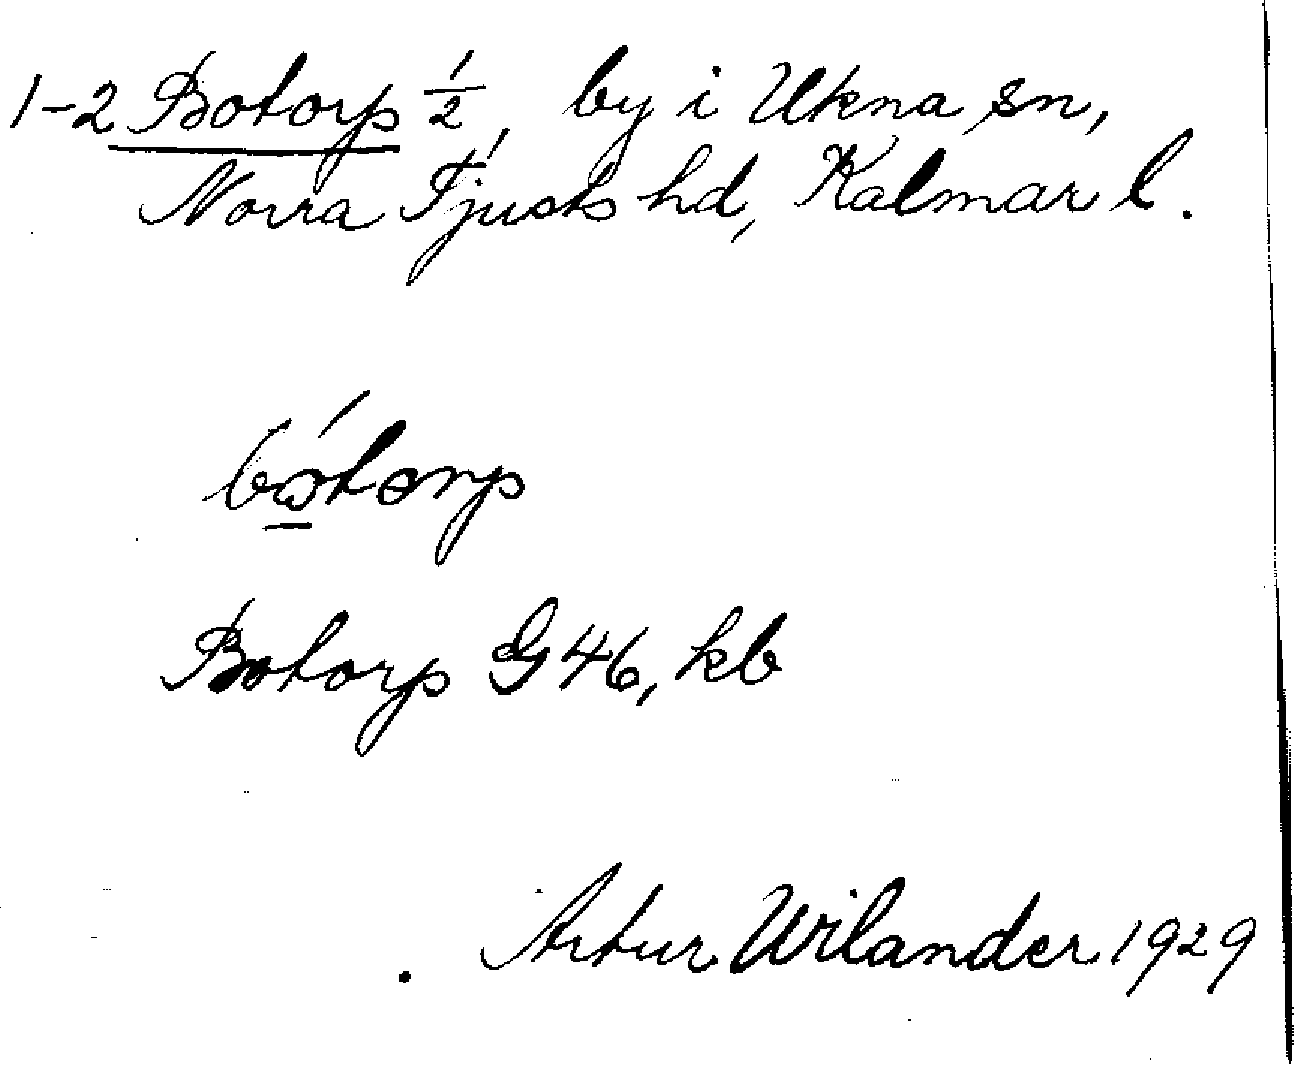 1-2 Botorp 1/2, by i Ukna sn,
Norra Tjusts hd, Kalmar l.
bótorp
Botorp G 46, kb
Artur Wilander 1929